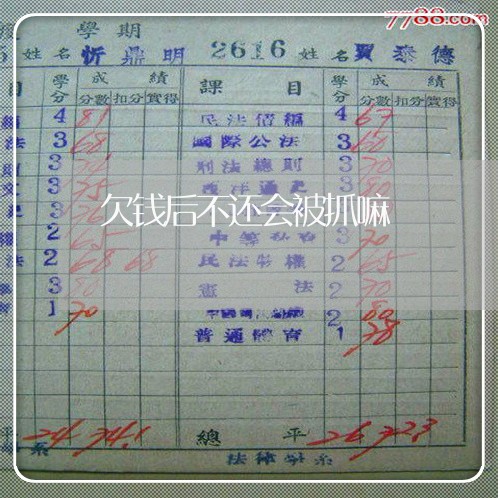 7788.com
學期
姓名 忻鼎明 2616 姓名 賈泰德
目 學分 成績 課目 學分 成績
分數 扣分 實得 分數 扣分 實得
4 81 民法債編 4 67
法 3 68 國際公法 3 60
3 刑法總則 3 70
3 75 西洋通史 3
欠钱后不还会被抓嘛
2 65 3 70
法 2 68 68 民法物權 2 65
3 80 憲法 2 70
1 70 2 80
普通體育 1 78
平 24 74.1 總平 26 72.3
系 法律學系